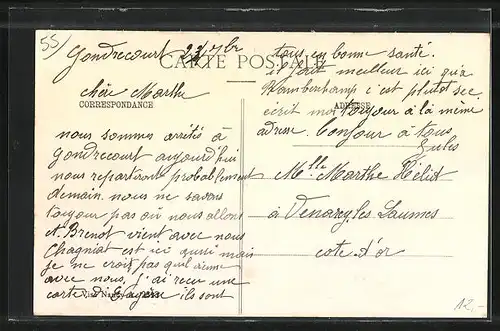 55
Gondrecourt 23/7bre
CARTE POSTALE
chère Marthe
CORRESPONDANCE
nous sommes arrêtés à
Gondrecourt aujourd'hui
nous repartirons probablement
demain. nous ne savons
toujour pas où nous allons
A. Brenot vient avec nous
Chagniat est ici aussi mais
je ne crois pas qu'il vienne
avec nous. j'ai recu une
carte d'Eugène ils sont
tous en bonne santé.
il fait meilleur ici qu'a
Rambershamp c'est plutôt sec
écrit moi toujour à la même
ADRESSE
adresse. Bonjour à tous
Jules
Mlle Marthe Héliot
à Venarey les Laumes
cote d'or
12.-